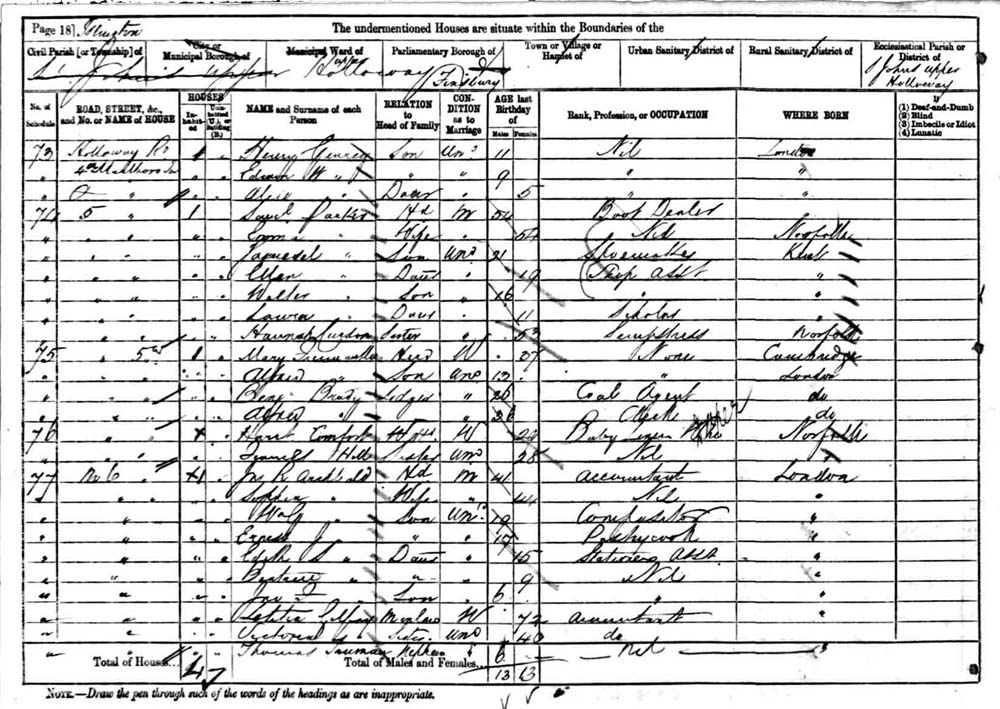 Page 18] Islington The undermentioned Houses are situate within the Boundaries of the
Civil Parish [or Township] of City or Municipal Borough of Municipal Ward of Parliamentary Borough of Town or Village or Hamlet of Urban Sanitary District of Rural Sanitary District of Ecclesiastical Parish or District of
St. John's Upper Holloway Upper Holloway Finsbury St Johns Upper Holloway
No. of Schedule ROAD, STREET, &c., and No. or NAME of HOUSE HOUSES Inhabited Uninhabited (U.), or Building (B.) NAME and Surname of each Person RELATION to Head of Family CONDITION as to Marriage AGE last Birthday of Males Females Rank, Profession, or OCCUPATION WHERE BORN If (1) Deaf-and-Dumb (2) Blind (3) Imbecile or Idiot (4) Lunatic
73 Holloway Rd 1 Henry Son Unm 11 Nil London
Edwin W " " " 9 " "
Alice " Daur 5 " "
74 5 " 1 Saml Parker Hd M 54 Boot Dealer "
" Emma " Wife " 54 Nil Norfolk
" " Son Unm 21 Shoemaker Kent
" Ellen " Daur " 19 Shop Asst "
" Walter " Son " 16 " "
" Laura " Daur " 11 Scholar "
" Hannah Sister " 53 Sempstress Norfolk
75 " 5a 1 Mary Head W 37 None Cambridge
" Alfred " Son Unm 13 " London
" Benj Brady Lodger " 26 Coal Agent do
" Alfred " " 26 Clerk do
76 " Harriet Comfort W 29 Baby Linen Norfolk
" Hill Sister Unm 28 Nil "
77 No 6 1 Jas R Archbald Hd M 41 Accountant London
" Sophia " Wife " 41 Nil "
" Wm G " Son Unm 19 Compositor "
" Ernest J " " " 17 Pastrycook "
" Edith S " Daur " 15 Stationers Asst "
" Beatrice " " 9 Nil "
" " Son 6 " "
" Letitia W 72 Accountant "
" Victoria Sister Unm 40 do
" Thomas Nephew " 6 Nil "
Total of Houses... 4 Total of Males and Females... 13 13
NOTE.—Draw the pen through such of the words of the headings as are inappropriate.